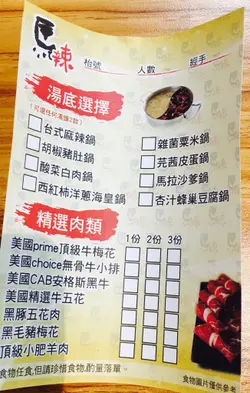 馬辣
枱號 人數 經手
湯底選擇
(可選任何湯煲2款)
台式麻辣鍋
胡椒豬肚鍋
酸菜白肉鍋
西紅柿洋蔥海皇鍋
雜菌粟米鍋
芫茜皮蛋鍋
馬拉沙爹鍋
杏汁蜂巢豆腐鍋
精選肉類 1份 2份 3份
美國prime頂級牛梅花
美國choice無骨牛小排
美國CAB安格斯黑牛
美國精選牛五花
黑豚五花肉
黑毛豬梅花
頂級小肥羊肉
食物任食,但請珍惜食物,酌量落單。
食物圖片僅供參考